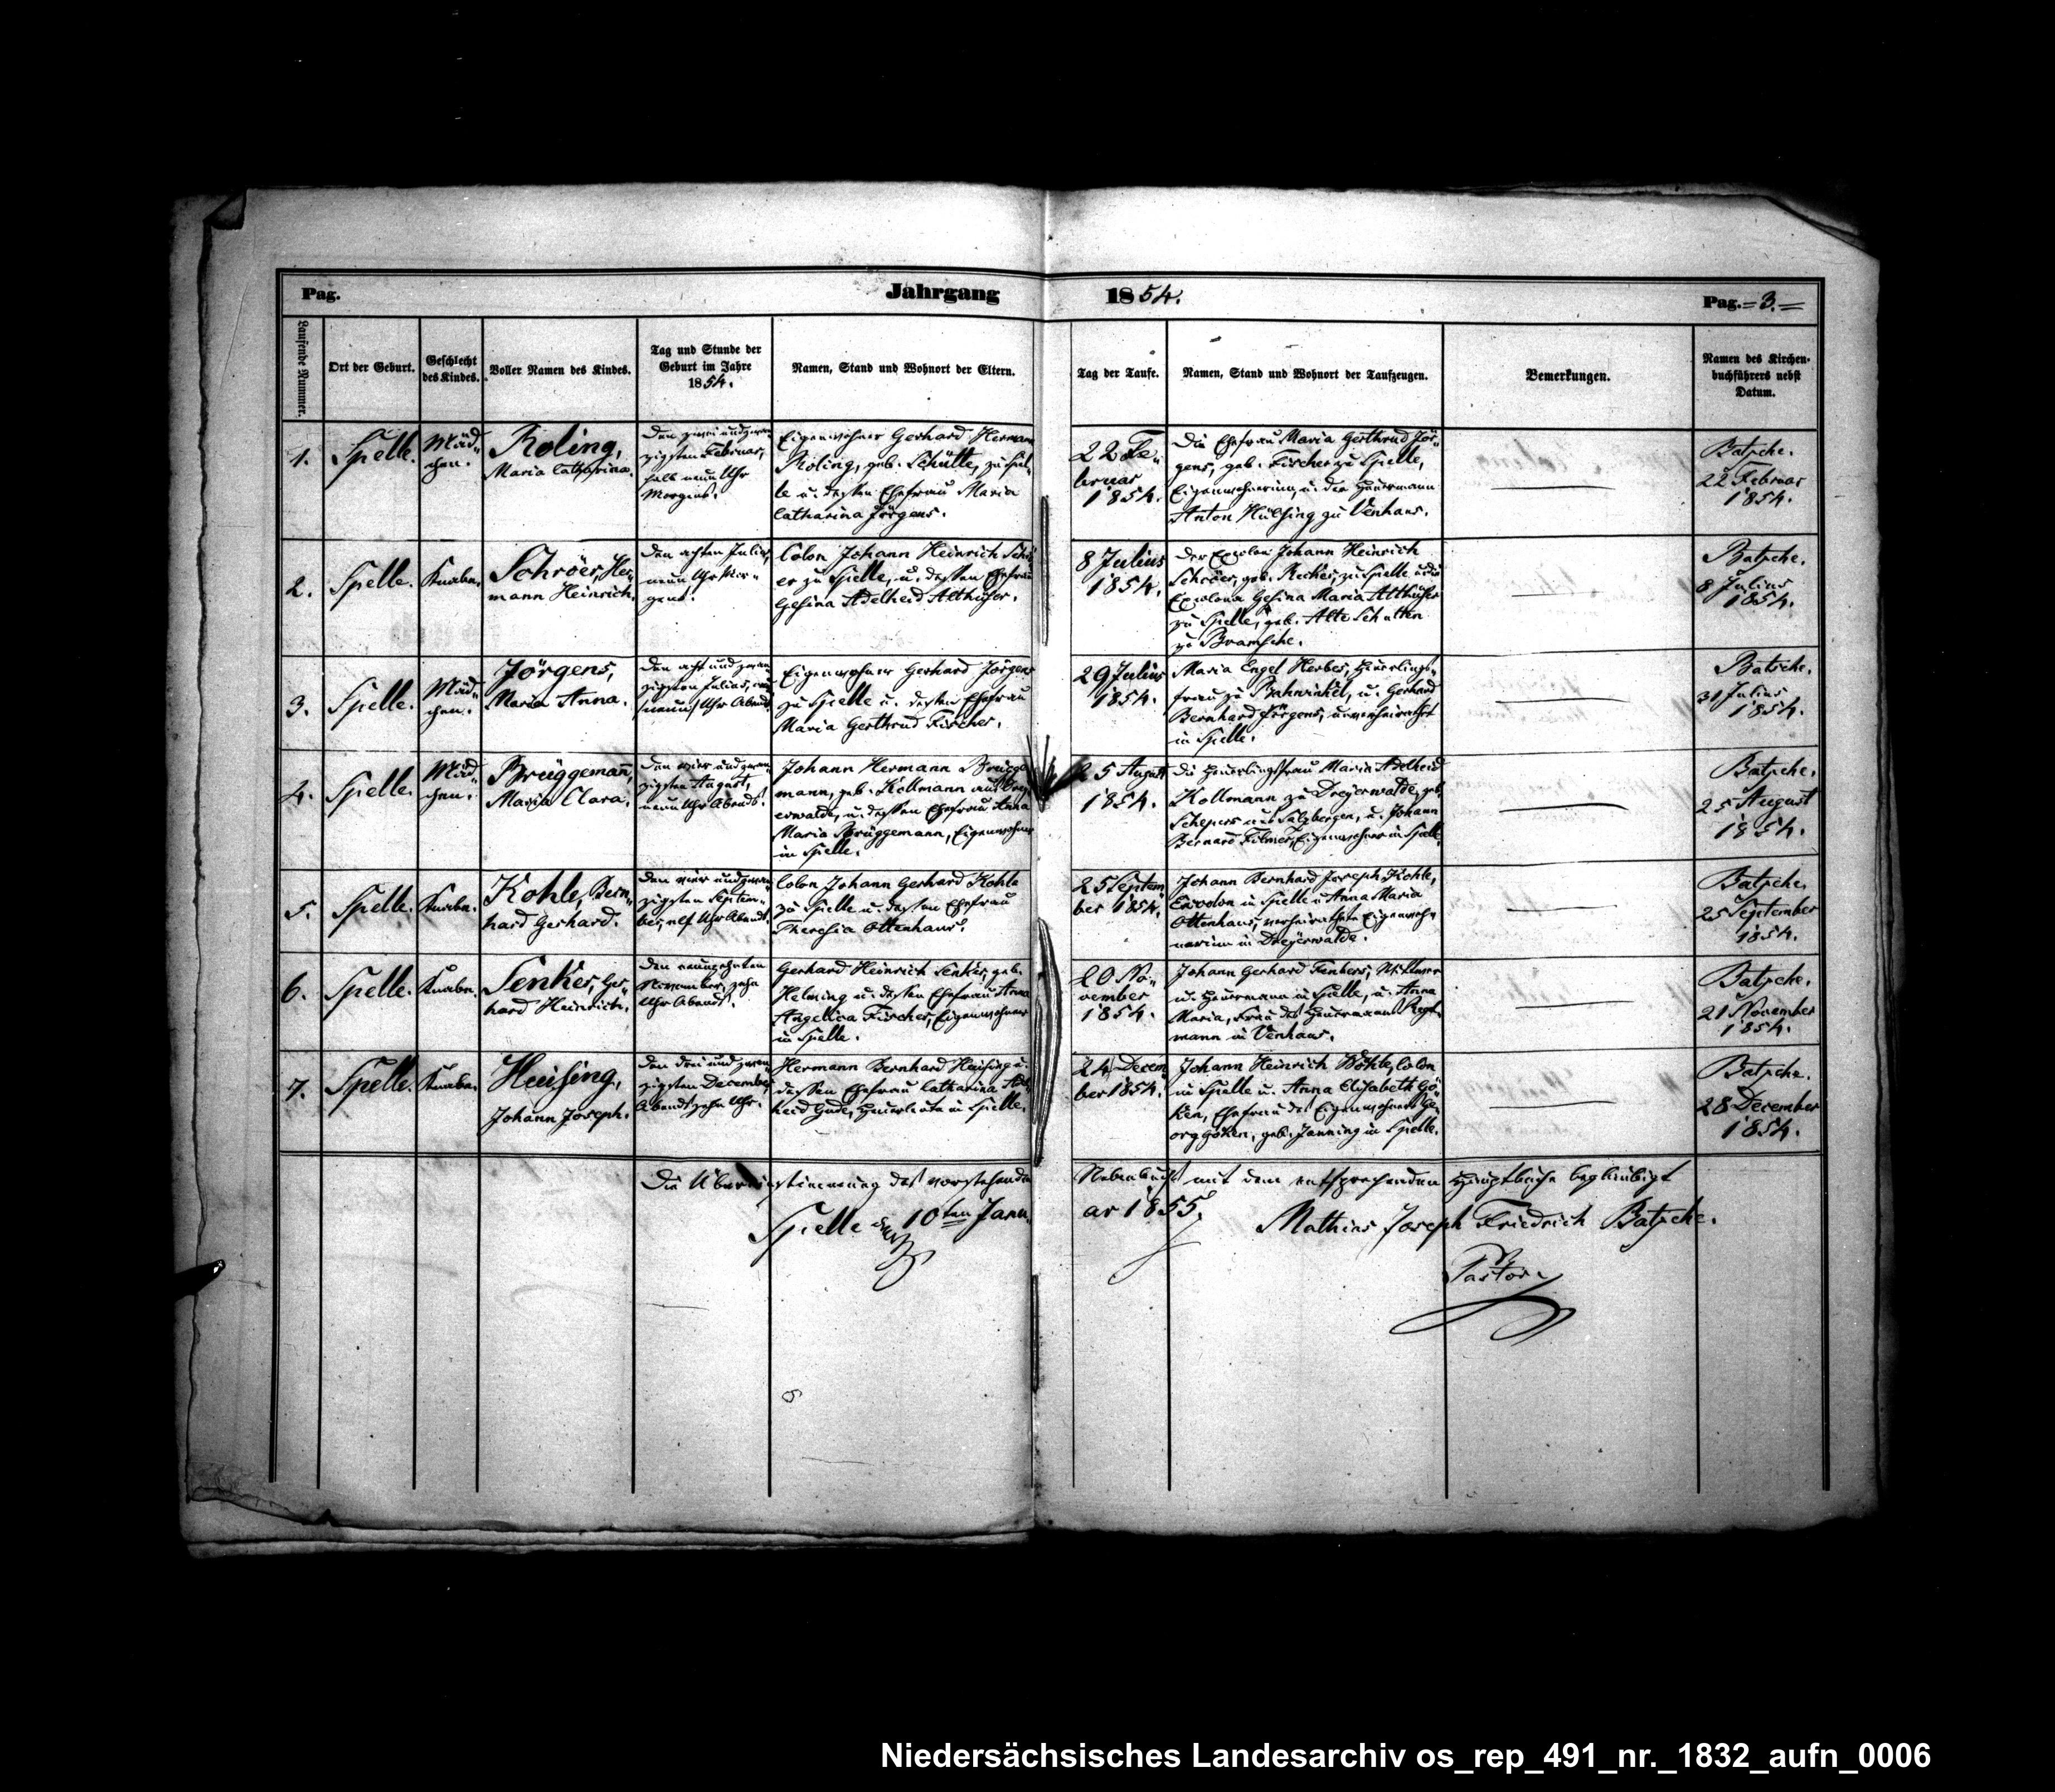 Pag.
Jahrgang
1854.
Pag. =3.=
Laufende Nummer.
Ort der Geburt.
Geschlecht
des Kindes.
Voller Namen des Kindes.
Tag und Stunde der
Geburt im Jahre
1854.
Namen, Stand und Wohnort der Eltern.
Tag der Taufe.
Namen, Stand und Wohnort der Taufzeugen.
Bemerkungen.
Namen des Kirchen-
buchführers nebst
Datum.
1.
Spelle.
Mäd-
chen.
Roling,
Maria Catharina.
Den zwei und zwan-
zigsten Februar,
halb neun Uhr
Morgens.
Eigenwohner Gerhard Hermann
Roling, geb. Schütte, zu Spel-
le u. dessen Ehefrau Maria
Catharina Jörgens.
22 Fe-
bruar
1854.
Die Ehefrau Maria Gerthrud Jör-
gens, geb. Fischer zu Spelle,
Eigenwohnerinn, u. der Heuermann
Anton Hülsing zu Venhaus.
Batsche.
22 Februar
1854.
2.
Spelle.
Knabe.
Schröer, Her-
mann Heinrich.
Den achten Julius,
neun Uhr Mor-
gens.
Colon Johann Heinrich Schrö-
er zu Spelle, u. dessen Ehefrau
Gesina Adelheid Althüser.
8 Julius
1854.
Der Excolon Johann Heinrich
Schröer, geb. Reckers, zu Spelle u. die
Excolona Gesina Maria Althüser
zu Spelle, geb. Alte Schulten
zu Bramsche.
Batsche.
8 Julius
1854.
3.
Spelle.
Mäd-
chen.
Jörgens,
Maria Anna.
Den acht und zwan-
zigsten Julius,
neun Uhr Abends.
Eigenwohner Gerhard Jörgens
zu Spelle u. dessen Ehefrau
Maria Gerthrud Fischer.
29 Julius
1854.
Maria Engel Herbes, Heuerlings-
frau zu u. Gerhard
Bernhard Jörgens, unverheirathet
in Spelle.
Batsche.
31 Julius
1854.
4.
Spelle.
Mäd-
chen.
Brüggemann,
Maria Clara.
Den vier und zwan-
zigsten August,
neun Uhr Abends.
Johann Hermann Brügge-
mann, geb. Kollmann aus Drey-
erwalde, u. dessen Ehefrau Anna
Maria Brüggemann, Eigenwohner
in Spelle.
25 August
1854.
Die Heuerlingsfrau Maria Adelheid
Kollmann zu Dreyerwalde, geb.
Schepers aus Salzbergen, u. Johann
Bernard Eigenwohner in Spelle.
Batsche.
25 August
1854.
5.
Spelle.
Knabe.
Kohle, Bern-
hard Gerhard.
Den vier und zwan-
zigsten Septem-
ber, elf Uhr Abends.
Colon Johann Gerhard Kohle
zu Spelle u. dessen Ehefrau
Theresia Ottenhaus.
25 Septem
ber 1854.
Johann Bernhard Joseph Kohle,
Excolon in Spelle u. Anna Maria
Ottenhaus, verheirathete Eigenwoh-
nerinn in Dreyerwalde.
Batsche.
25 September
1854.
6.
Spelle.
Knabe.
Senker, Ger-
hard Heinrich.
Den neunzehnten
November, zehn
Uhr Abends.
Gerhard Heinrich Senker, geb.
Helming u. dessen Ehefrau Anna
Angelica Fischer, Eigenwohner
in Spelle.
20 No-
vember
1854.
Johann Gerhard Wittwer
u. Heuermann in Spelle, u. Anna
Maria, Frau des Heuermanns
mann in Venhaus.
Batsche.
21 November
1854.
7.
Spelle.
Knabe.
Heusing,
Johann Joseph.
Den drei und zwan-
zigsten December,
Abends zehn Uhr.
Hermann Bernhard Heusing u.
dessen Ehefrau Catharina Adel-
heid Gude, Heuerleute in Spelle.
24 Decem
ber 1854.
Johann Heinrich Colon
in Spelle u. Anna Elisabeth Gö-
ken, Ehefrau des Eigenwohners Ge-
org Göken, geb. Janning in Spelle.
Batsche.
28 December
1854.
Die Übereinstimmung des vorstehenden Nebenbuchs mit dem entsprechenden Hauptbuche beglaubigt
Spelle den 10ten Janu-
ar 1855.
Mathias Joseph Friedrich Batsche.
Pastor.
Niedersächsisches Landesarchiv os_rep_491_nr._1832_aufn_0006